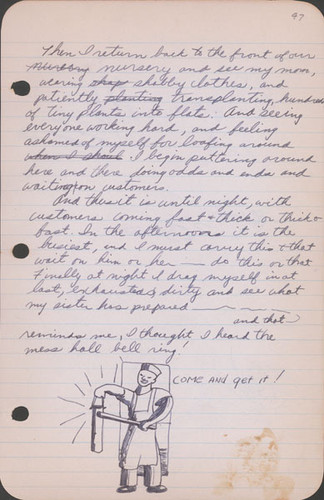 97
Then I return back to the front of our
nursery and see my mom,
wearing shop shabby clothes, and
patiently planting transplanting, hundreds
of tiny plants into flats. And seeing
everyone working hard, and feeling
ashamed of myself for loafing around
when I shoul I begin puttering around
here and there doing odds and ends and
waiting on customers.
And thus it is until night, with
customers coming fast + thick or thick +
fast. In the afternoons it is the
busiest, and I must carry this + that
wait on him or her — do this or that
Finally at night I drag myself in at
last, exhausted & dirty and see what
my sister has prepared —
and that
reminds me, I thought I heard the
mess hall bell ring!
COME AND GET IT!